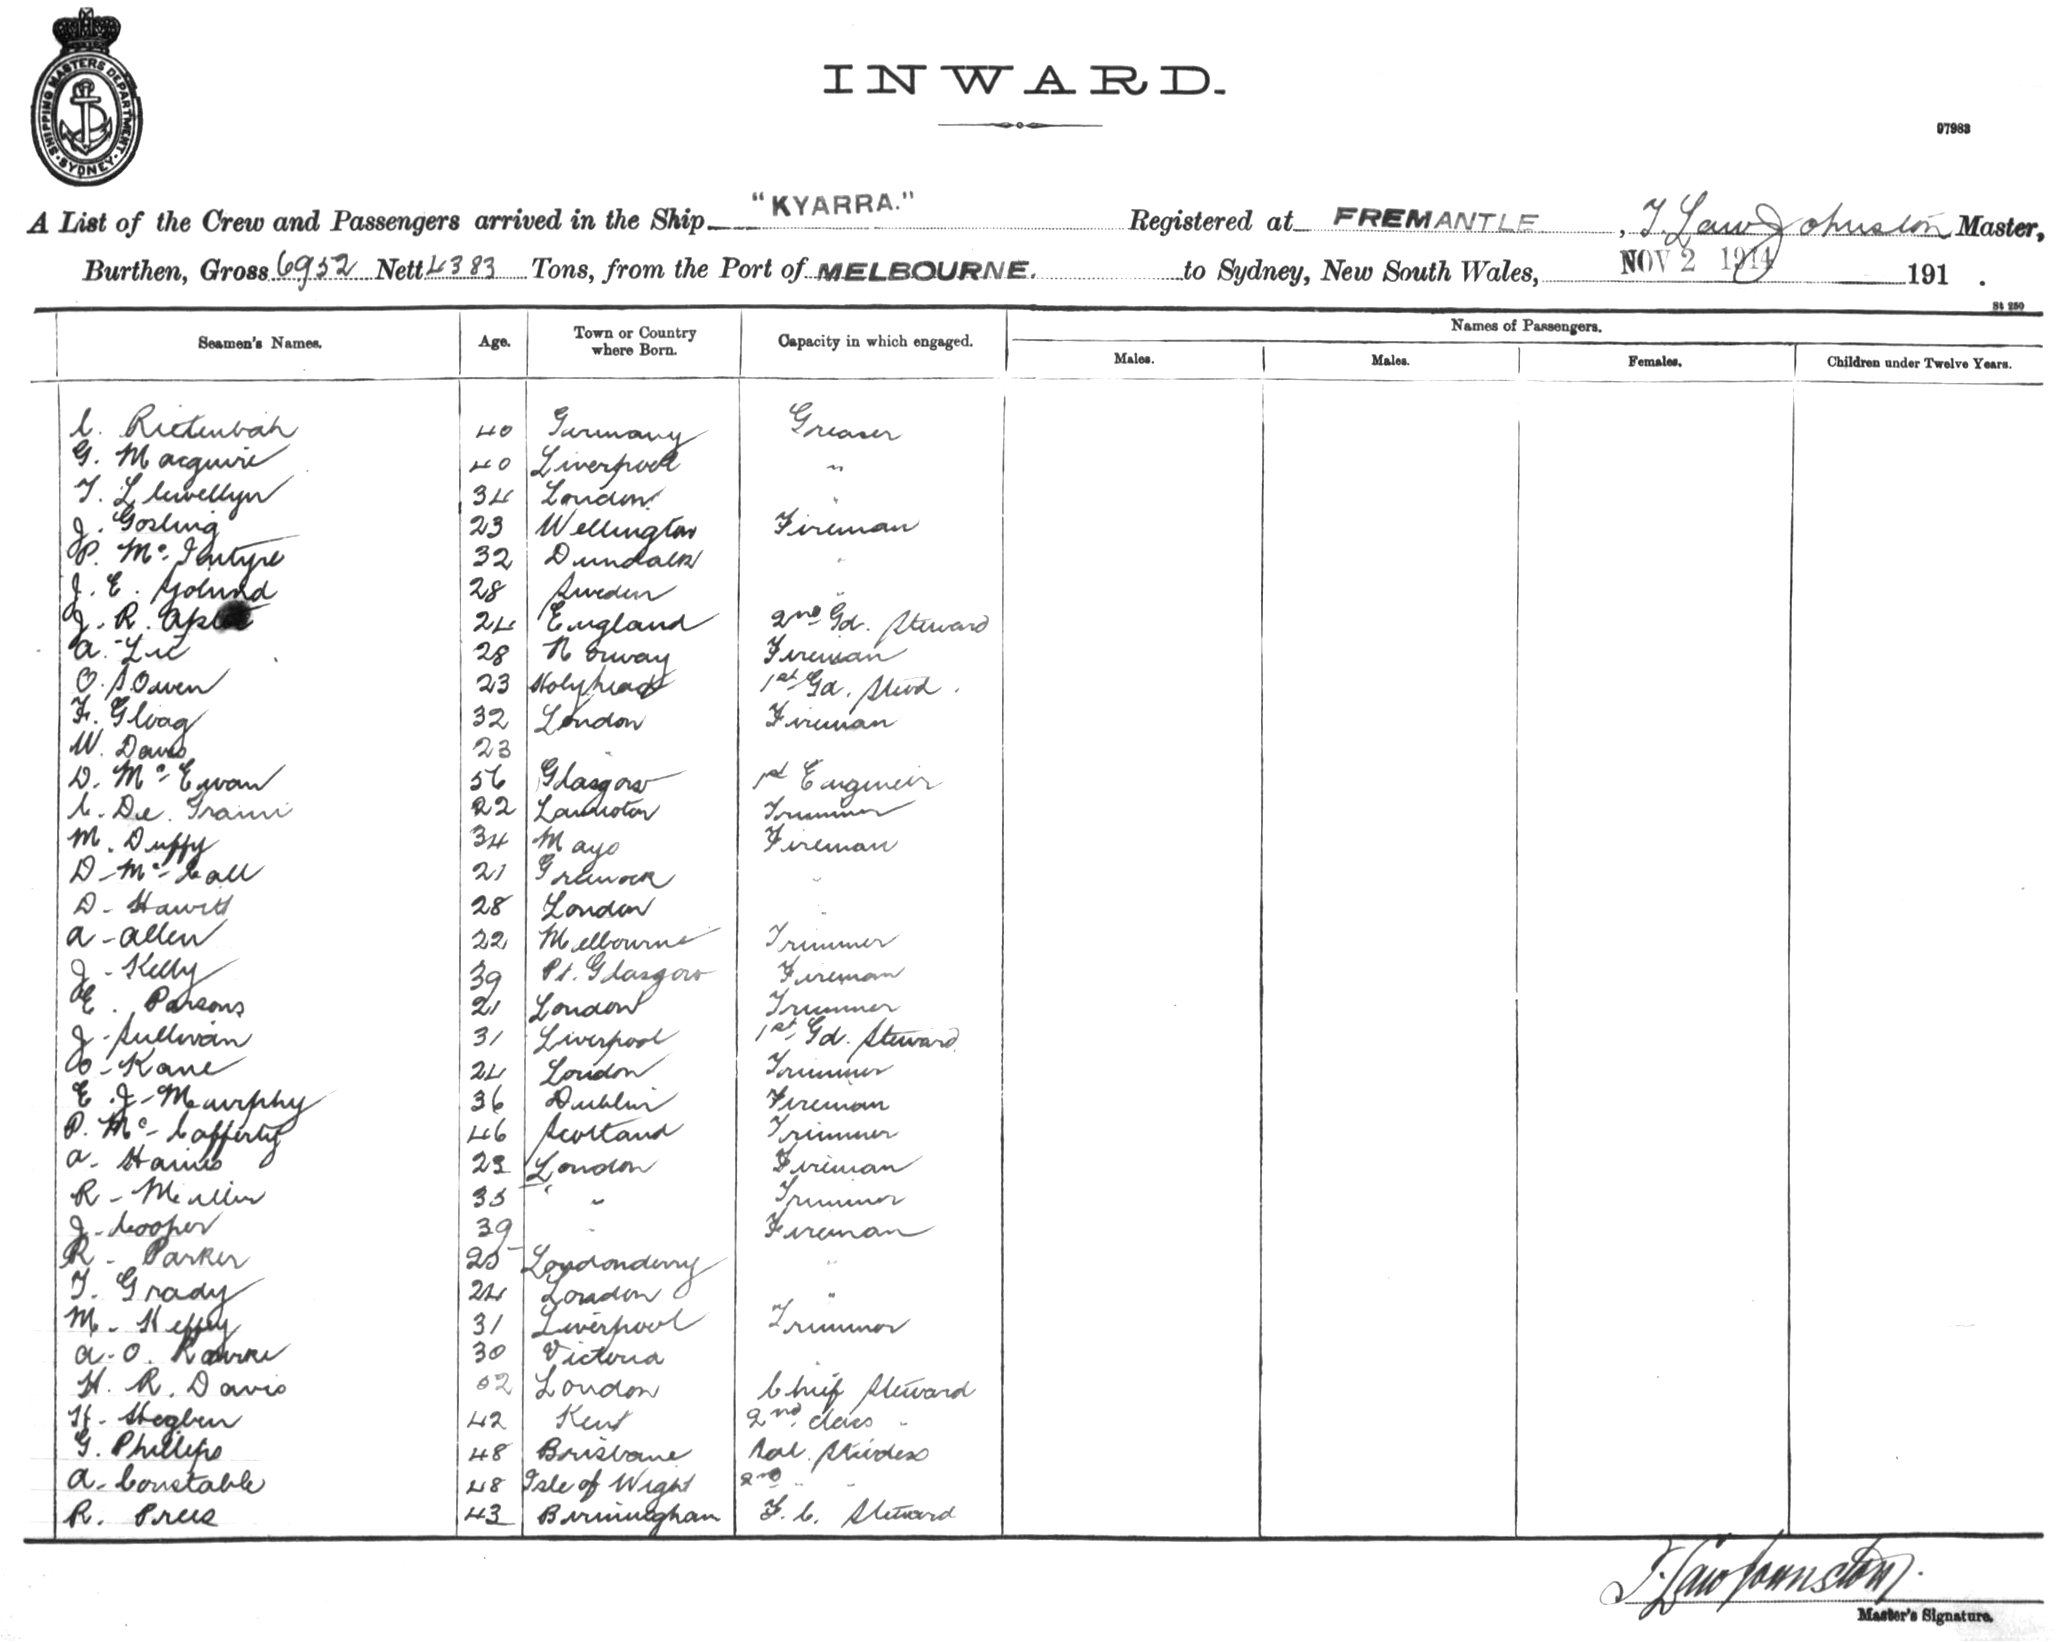 SHIPPING MASTERS DEPARTMENT · SYDNEY ·
INWARD.
97983
A List of the Crew and Passengers arrived in the Ship "KYARRA." Registered at FREMANTLE, T. Law Johnston Master,
Burthen, Gross 6952 Nett 4383 Tons, from the Port of MELBOURNE. to Sydney, New South Wales, NOV 2 1914 191 .
St 250
Seamen's Names. Age. Town or Country where Born. Capacity in which engaged. Names of Passengers.
Males. Males. Females. Children under Twelve Years.
C. 40 Germany Greaser
G. Macguire 40 Liverpool "
T. Llewellyn 34 London "
J. Gosling 23 Wellington Fireman
P. Mc Intyre 32 Dundalk "
J. E. 28 Sweden "
J. R. 24 England 2nd Gd. Steward
A. Lie 28 Norway Fireman
O. S. Owen 23 Holyhead 1st Gd. Stwd.
F. 32 London Fireman
W. Davis 23 "
D. Mc Ewan 56 Glasgow 1st Engineir
C. De 22 Trimmer
M. Duffy 34 Mayo Fireman
D - Mc - Call 21 Greenock "
D - 28 London "
A - Allen 22 Melbourne Trimmer
J - Kelly 39 Pt. Glasgow Fireman
E. Parsons 21 London Trimmer
J - Sullivan 31 Liverpool 1st Gd. Steward
Kane 24 London Trimmer
E. J - Murphy 36 Dublin Fireman
P. Mc - Cafferty 46 Scotland Trimmer
A. 23 London Fireman
R - 35 " " Trimmer
J - Cooper 39 " Fireman
R - Parker 25 Londonderry "
T. Grady 24 London "
M - 31 Liverpool Trimmer
A - O. Rourke 30 Victoria
H. R. Davis 52 London Chief Steward
H - 42 Kent 2nd class "
G. Phillips 48 Brisbane Sal. Stwdess
A - Constable 48 Isle of Wight 2nd " "
R. 43 Birmingham F. C. Steward
T. Law Johnston.
Master's Signature.